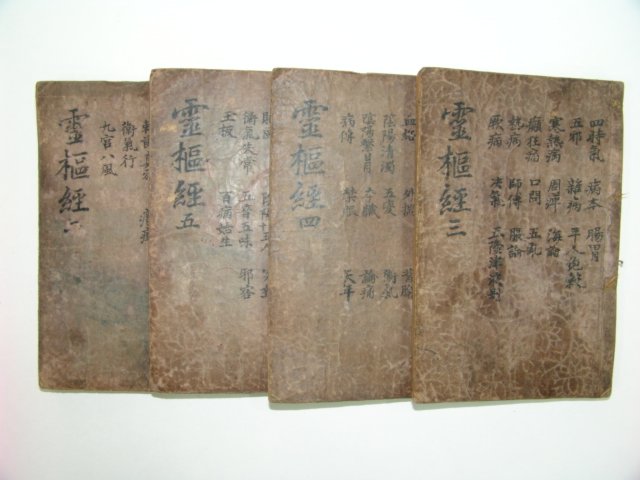 靈樞經 三
四時氣 病本 腸胃
五邪 雜病 平人絶穀
寒熱病 周痺 海論
癲狂病 口問 五乱
熱病 師傳 脹論
厥病 决氣 五癃津液別
靈樞經 四
血絡 外揣
陰陽清濁 五変
陰陽繫日月 本臟 衛氣
病傳 禁服 論痛
天年
靈樞經 五
衛氣失常 五音五味 邪客
玉板 百病始生
靈樞經 六
衛氣行
九宮八風